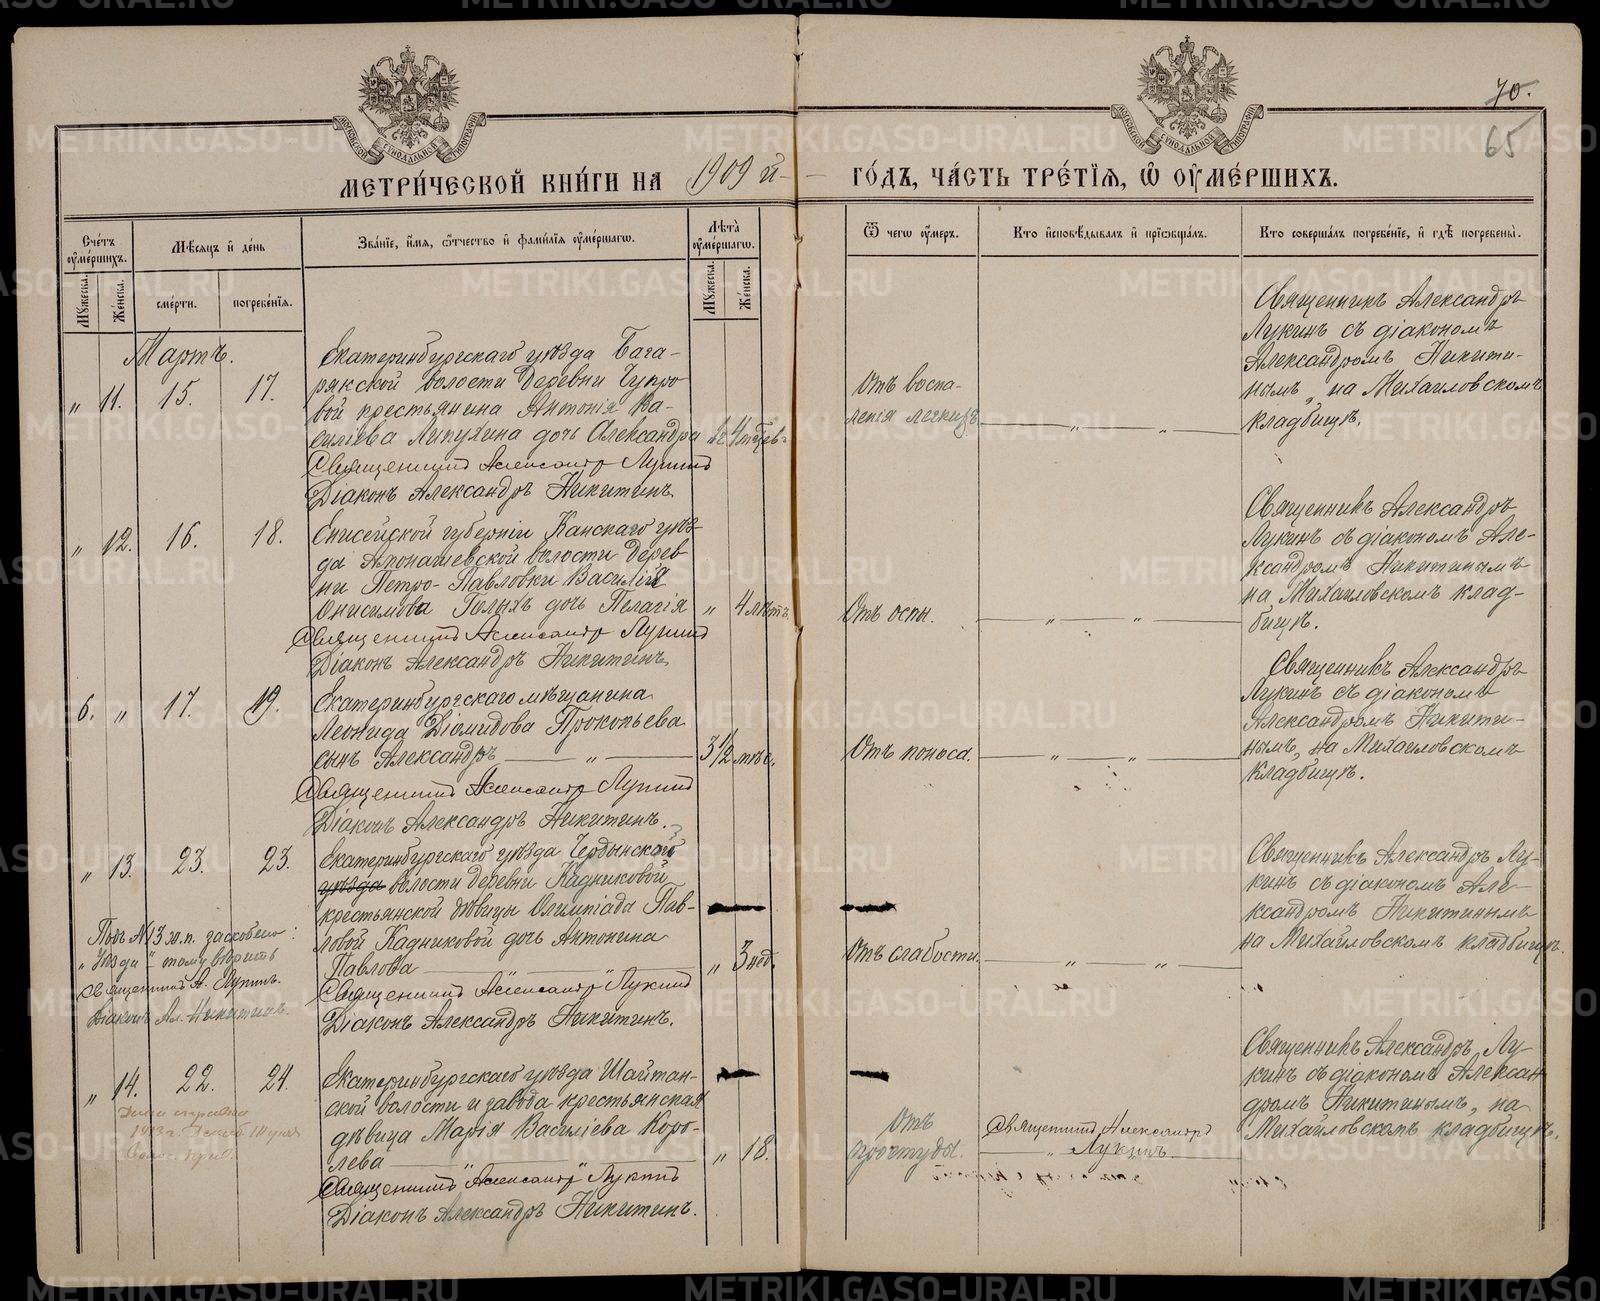 70.
65
МОСКОВСКОЙ СѴНОДАЛЬНОЙ ТИПОГРАФІИ
МОСКОВСКОЙ СѴНОДАЛЬНОЙ ТИПОГРАФІИ
МЕТРИ́ЧЕСКОЙ КНИ́ГИ НА 1909 й ГО́ДЪ, ЧА́СТЬ ТРЕ́ТІѦ, Ѿ ОУ҆МЕ́РШИХЪ.
Сче́тъ оу҆ме́ршихъ.
Мѣ́сяцъ и҆ де́нь
Зва́нїе, и҆́мя, ѻ҆́тчество и҆ фами́лїя оу҆ме́ршагѡ.
Лѣ́та оу҆ме́ршагѡ.
Ѿ чегѡ̀ оу҆́меръ.
Кто̀ и҆сповѣ́дывалъ и҆ прїѡбща́лъ.
Кто̀ соверша́лъ погребе́нїе, и҆ гдѣ̀ погребены̀.
Му́жеска. Же́нска. сме́рти. погребе́нїя. Му́жеска. Же́нска.
Мартъ.
„ 11. 15. 17.
Екатеринбургскаго уѣзда Бага-
рякской волости деревни Чупро
вой крестьянина Антонія Ва-
силіева Липухина дочь Александра
Священникъ Александр Лукинъ
Діаконъ Александръ Никитинъ.
Отъ воспа-
ленія легкихъ
Священникъ Александръ
Лукинъ съ діакономъ
Александромъ Никити-
нымъ, на Михайловскомъ
кладбищѣ.
„ 12. 16. 18.
Енисейской губерніи Канскаго уѣз-
да Апонашевской волости дерев
ни Петро-Павловки Василія
Онисимова Голыхъ дочь Пелагія „ 4 лѣтъ.
Священникъ Александр Лукинъ
Діаконъ Александръ Никитинъ.
Отъ оспы.
Священникъ Александръ
Лукинъ съ діакономъ Але-
ксандромъ Никитинымъ
на Михайловскомъ клад-
бищѣ.
6. „ 17. 19.
Екатеринбургскаго мѣщанина
Леонида Діомидова Прокопьева
сынъ Александръ — „ — 3 1/2 мѣс.
Священникъ Александр Лукинъ
Діаконъ Александръ Никитинъ.
Отъ поноса.
Священникъ Александръ
Лукинъ съ діакономъ
Александромъ Никити-
нымъ, на Михайловскомъ
кладбищѣ.
„ 13. 23. 23.
Екатеринбургскаго уѣзда
уѣзда волости деревни Кадниковой
крестьянской дѣвицы Олимпіада Пав-
ловой Кадниковой дочь Антонина
Павлова „ 3 нед.
Священникъ Александр Лукинъ
Діаконъ Александръ Никитинъ.
Подъ № 13 ж.п. заскоблено:
„Уѣзда“ - тому вѣрить
Священникъ А. Лукинъ.
Діаконъ Ал. Никитинъ.
Отъ слабости.
Священникъ Александръ Лу-
кинъ съ діакономъ Але-
ксандромъ Никитинымъ
на Михайловскомъ кладбищѣ.
„ 14. 22. 24.
Екатеринбургскаго уѣзда Шайтан-
ской волости и завода крестьянская
дѣвица Марія Василіева Коро-
лева „ 18.
Священникъ Александр Лукинъ
Діаконъ Александръ Никитинъ.
Отъ
простуды.
Священникъ Александръ
„ Лукинъ
Священникъ Александръ Лу-
кинъ съ діакономъ Алексан
дромъ Никитинымъ, на
Михайловскомъ кладбищѣ.
METRIKI.GASO-URAL.RU